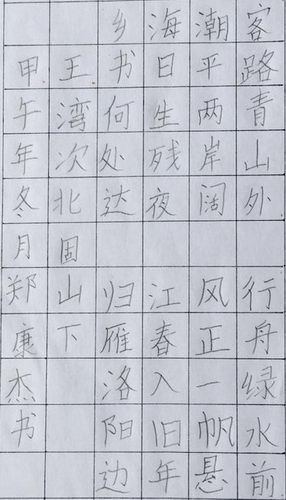 客路青山外 行舟绿水前
潮平两岸阔 风正一帆悬
海日生残夜 江春入旧年
乡书何处达 归雁洛阳边
王湾次北固山下
甲午年冬月郑康杰书